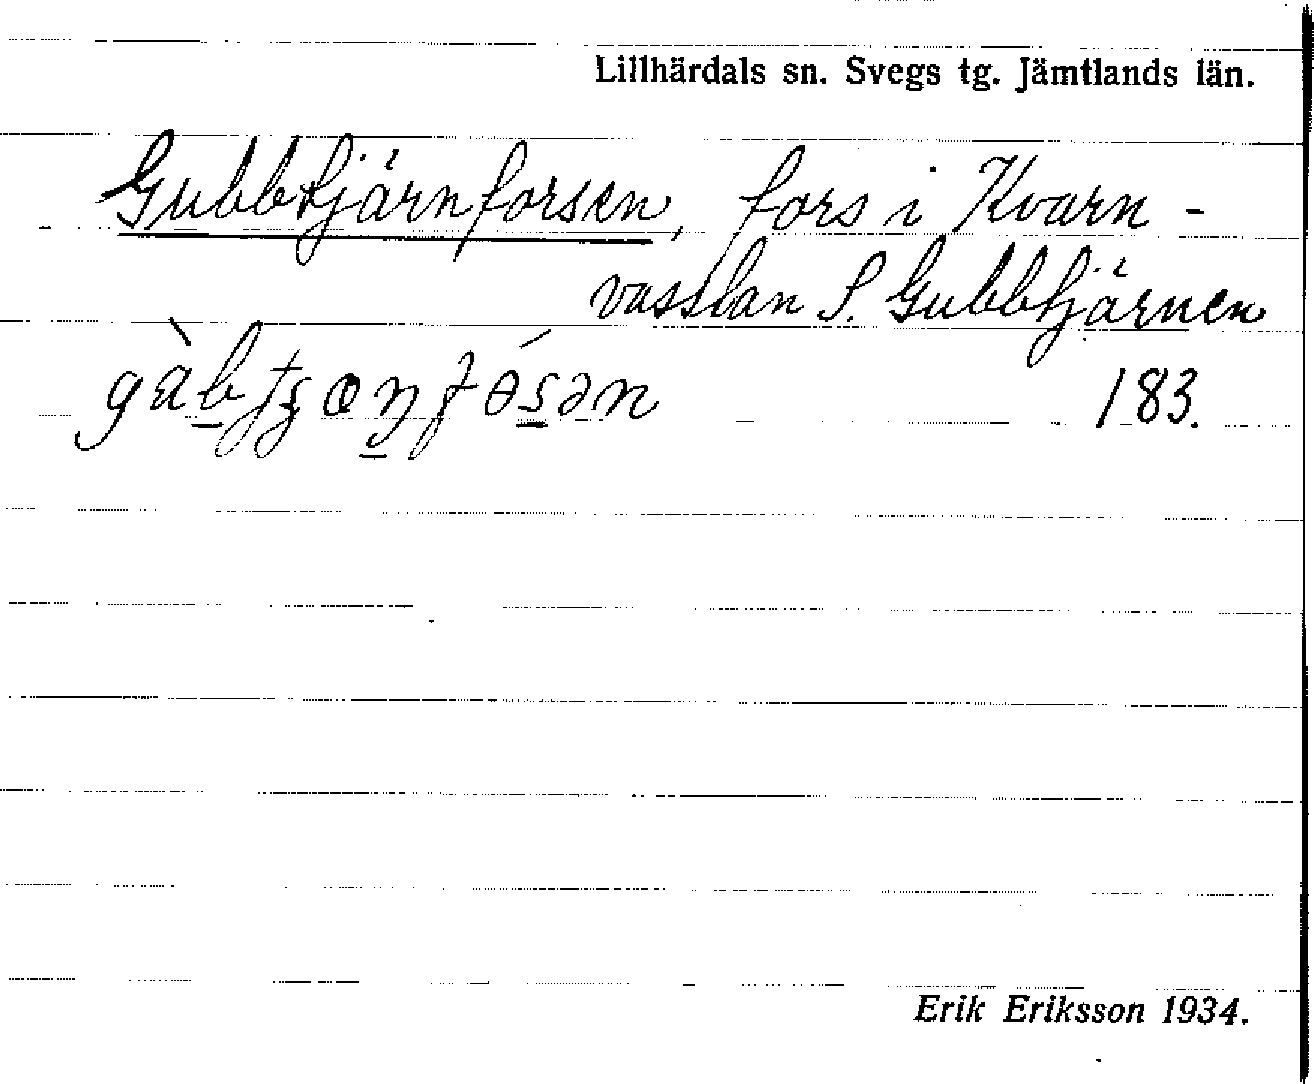 Lillhärdals sn. Svegs tg. Jämtlands län.
Gubbtjärnforsen, fors i Kvarn-
vasslan S. Gubbtjärnen
183.
Erik Eriksson 1934.